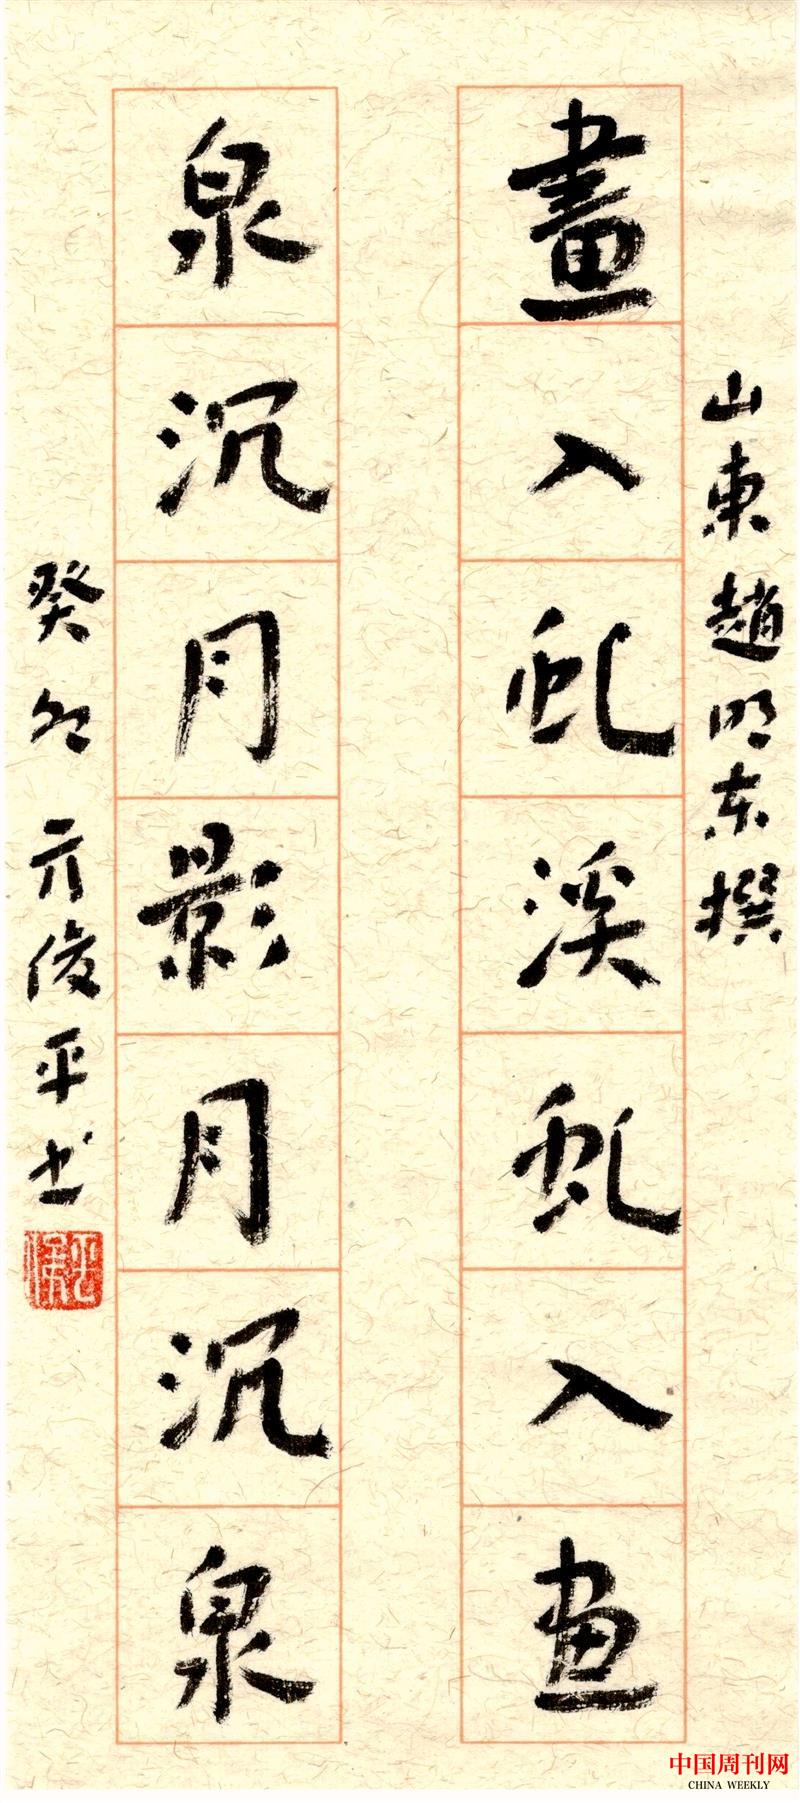 山東趙明东撰
畫入虬溪虬入畫
泉沉月影月沉泉
癸卯亓俊平书
中国周刊网
CHINA WEEKLY